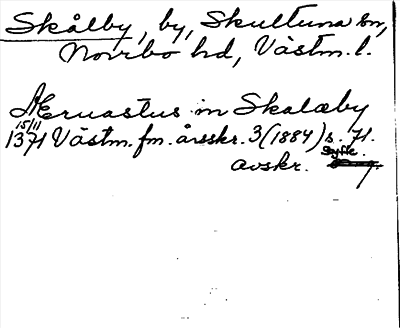 Skålby, by, Skultuna sn,
Norrbo hd, Västm. l.
Eruastus in Skalæby
15/11
1371 Västm. fm. årsskr. 3 (1884) s. 71.
avskr. Styffe.